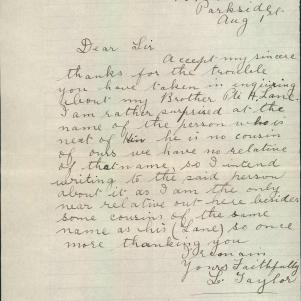 Parkside
Aug 1st
Dear Sir
Accept my sincere
thanks for the trouble
you have taken in enquiring
about my Brother Pte H. Lane.
I am rather surprised at the
name of the person who is
next of Kin he is no cousin
of ours we have no relative
of that name, so I intend
writing to the said person
about it as I am the only
near relative out here besides
some cousins of the same
name as his (Lane) so once
more thanking you
I Remain
Yours Faithfully
L. Taylor